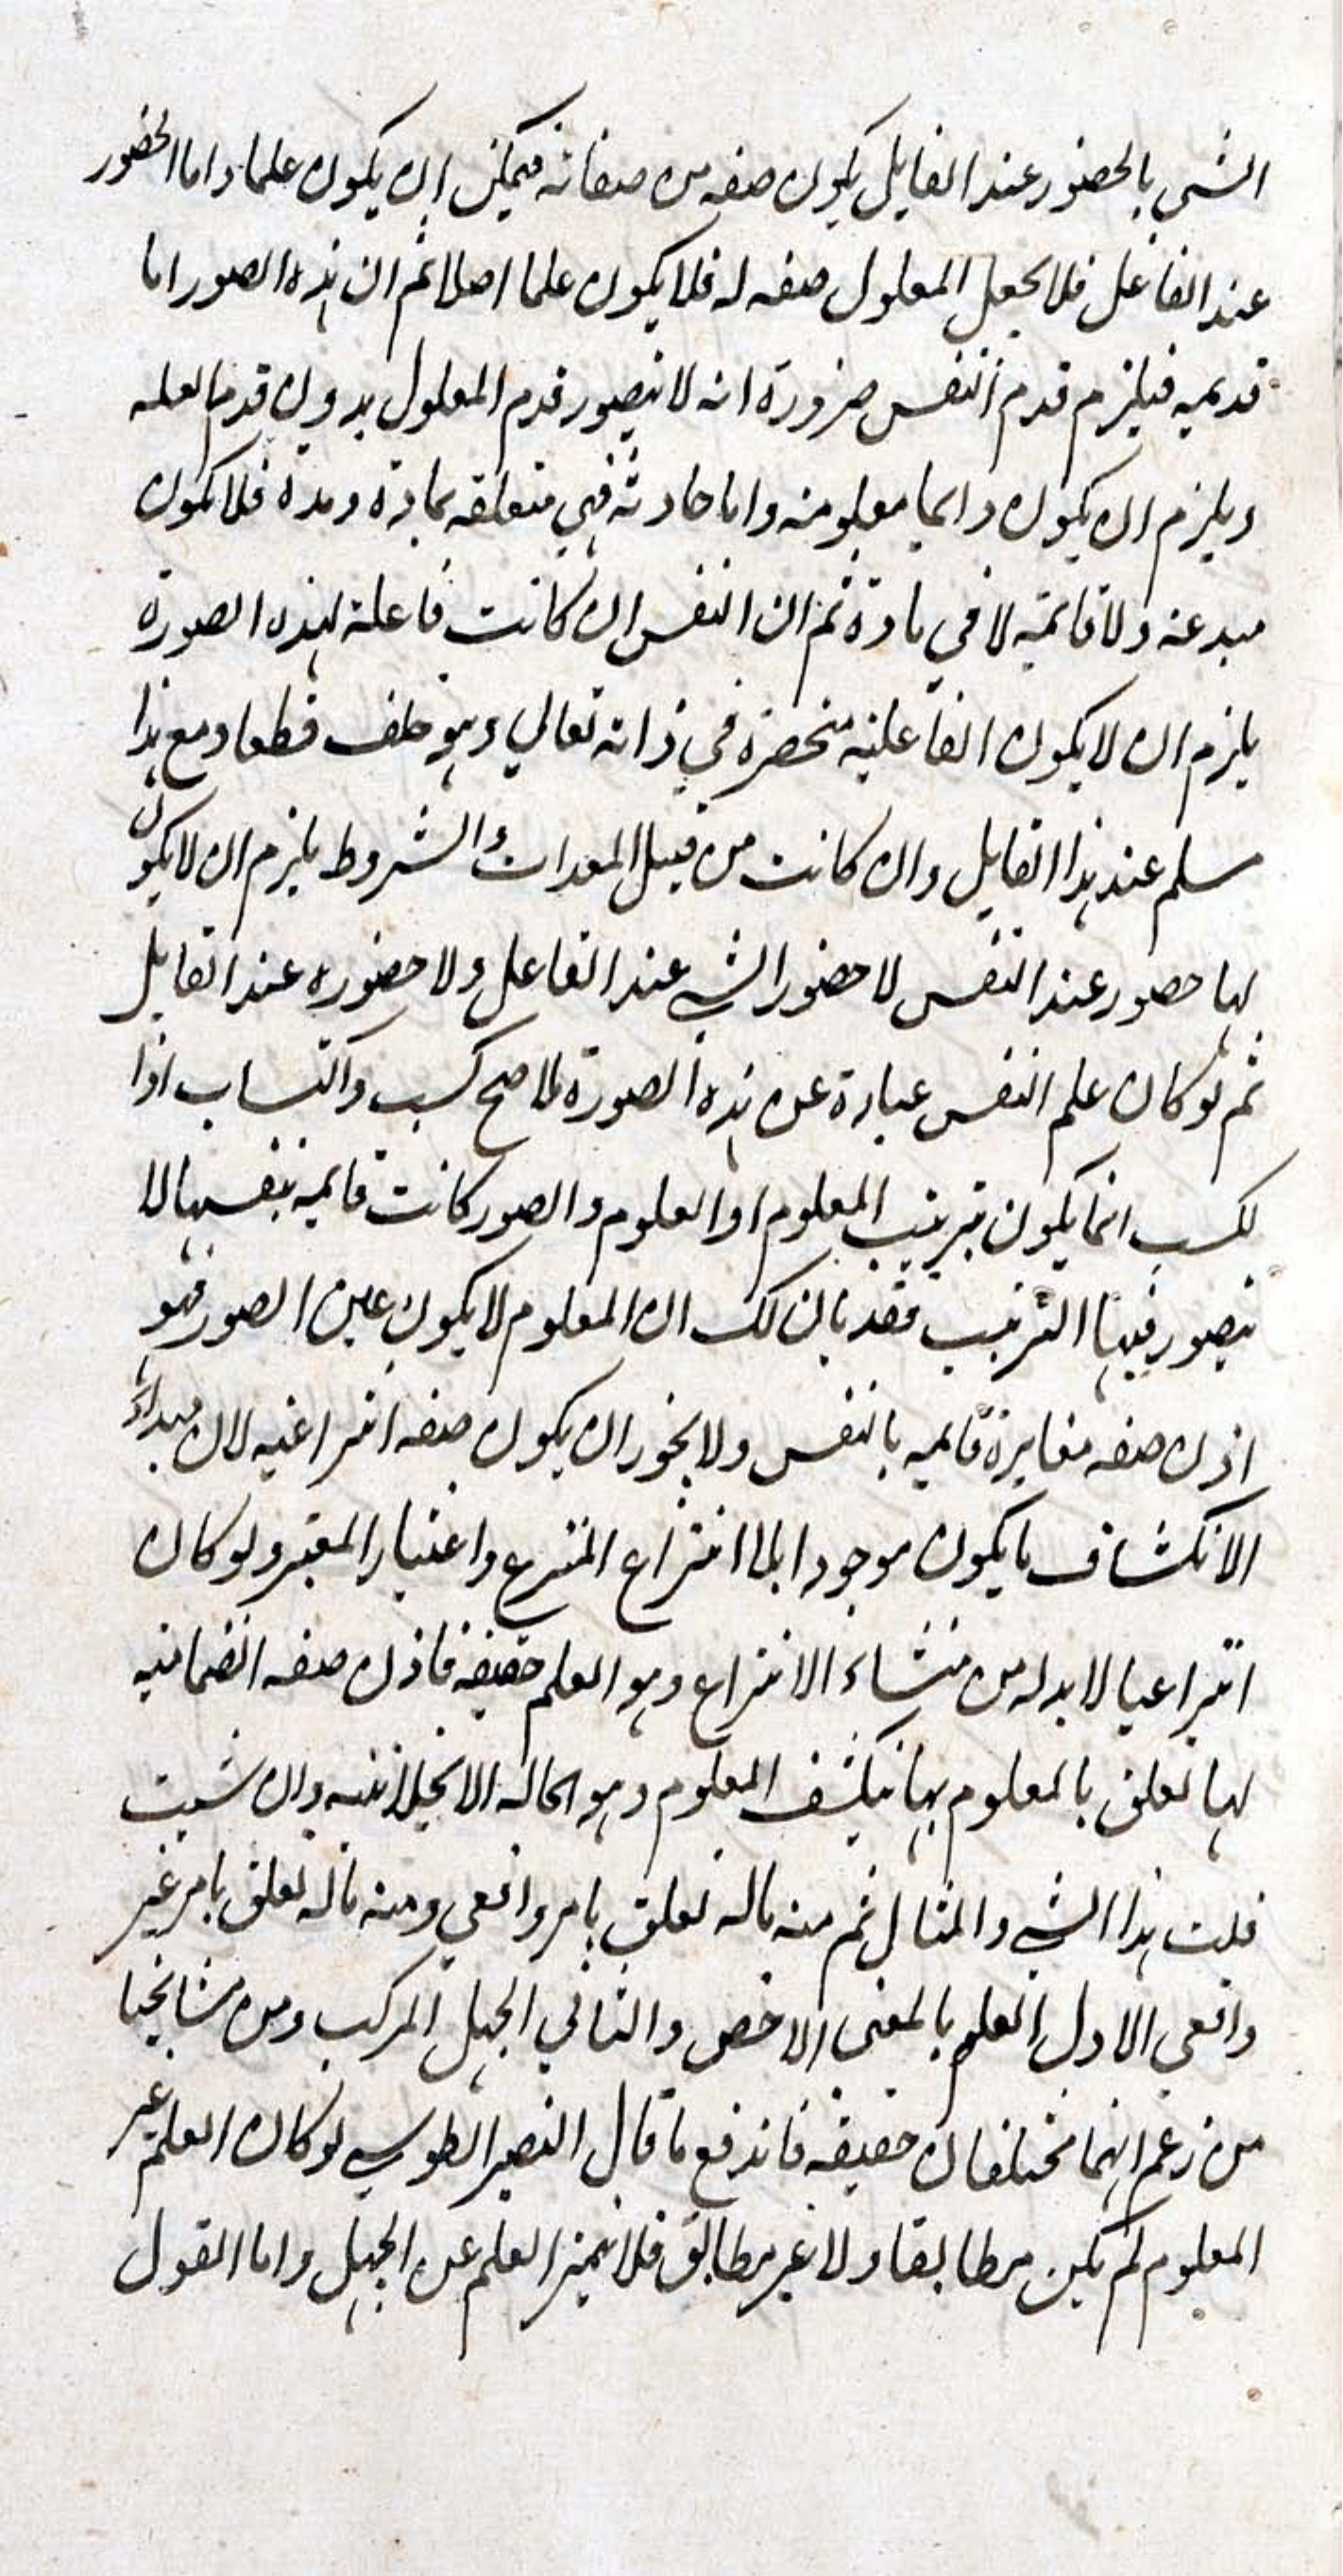 الشي بالحضور عند القابل يكون صفه من صفاته فيمكن ان يكون علما واما الحضور
عند الفاعل فلا يجعل المعلول صفه له فلا يكون علما اصلا ثم ان هذه الصور اما
قديمه فيلزم قدم النفس ضرورة انه لا يتصور قدم المعلول بدون قدم العله
ويلزم ان يكون دائما معلومه واما حادثه فهي متعلقه بمادة ومدة فلا تكون
مبدعه ولا قائمة لا في مادة ثم ان النفس ان كانت فاعلة لهذه الصورة
يلزم ان لا يكون الفاعلية منحصرة في ذاته تعالي وهو خلف قطعا ومع هذا
مسلم عند هذا القايل وان كانت من قبيل المعدات والشروط يلزم ان لا يكون
لها حضور عند النفس لا حضور الشي عند الفاعل ولا حضوره عند القابل
ثم لو كان علم النفس عبارة عن هذه الصورة لما صح كسب واكتساب اذا
لكسب انما يكون بترتيب المعلوم او العلوم والصور كانت قايمه بنفسها لا
يتصور فيها الترتيب فقد بان لك ان المعلوم لا يكون عين الصور فهو
اذن صفه مغايرة قايمه بالنفس ولا يجوز ان يكون صفه انتزاعيه لان مبداء
الانكشاف ما يكون موجودا بلا انتزاع المنتزع واعتبار المعتبر ولو كان
انتزاعيا لا بد له من منشاء الانتزاع وهو العلم حقيقه فاذن صفه انضماميه
لها تعلق بالمعلوم بها ينكشف المعلوم وهو الحاله الانجلائيه وان شئت
قلت هذا الشي والمثال ثم منه ماله تعلق بامر واقعي ومنه ماله تعلق بامر غير
واقعي الاول العلم بالمعني الاخص والثاني الجهل المركب ومن مشايخنا
من زعم انهما مختلفان حقيقه فاندفع ما قال النصير الطوسي لو كان العلم غير
المعلوم لم يكن مطابقا ولا غير مطابق فلا يتميز العلم عن الجهل واما القول